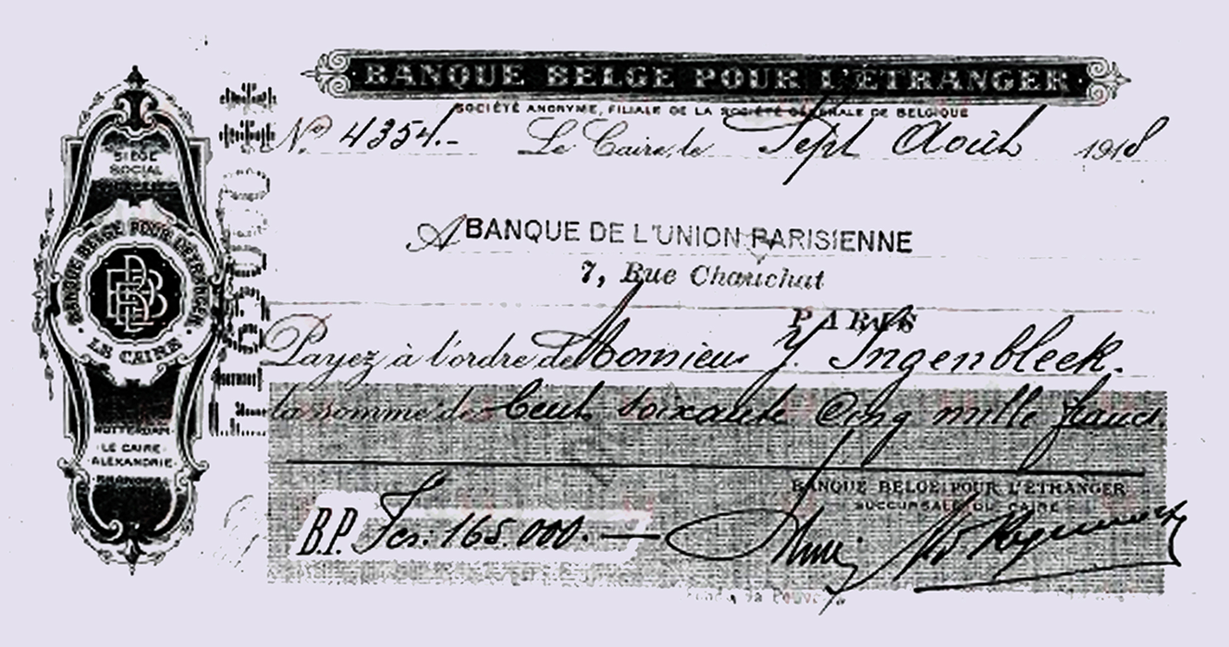 BANQUE BELGE POUR L'ETRANGER
SOCIÉTÉ ANONYME, FILIALE DE LA SOCIÉTÉ GÉNÉRALE DE BELGIQUE
No 4354.-
Le Caire, le Sept Août 1918
A BANQUE DE L'UNION PARISIENNE
7, Rue Chauchat
PARIS
Payez à l'ordre de Monsieur J. Ingenbleek.
la somme de Cent soixante cinq mille francs
BANQUE BELGE POUR L'ETRANGER
SUCCURSALE DU CAIRE
B.P. Fcs. 165.000.—
SIÈGE
SOCIAL
BRUXELLES
BANQUE BELGE POUR L'ETRANGER
LE CAIRE
BBE
ROTTERDAM
LE CAIRE
ALEXANDRIE